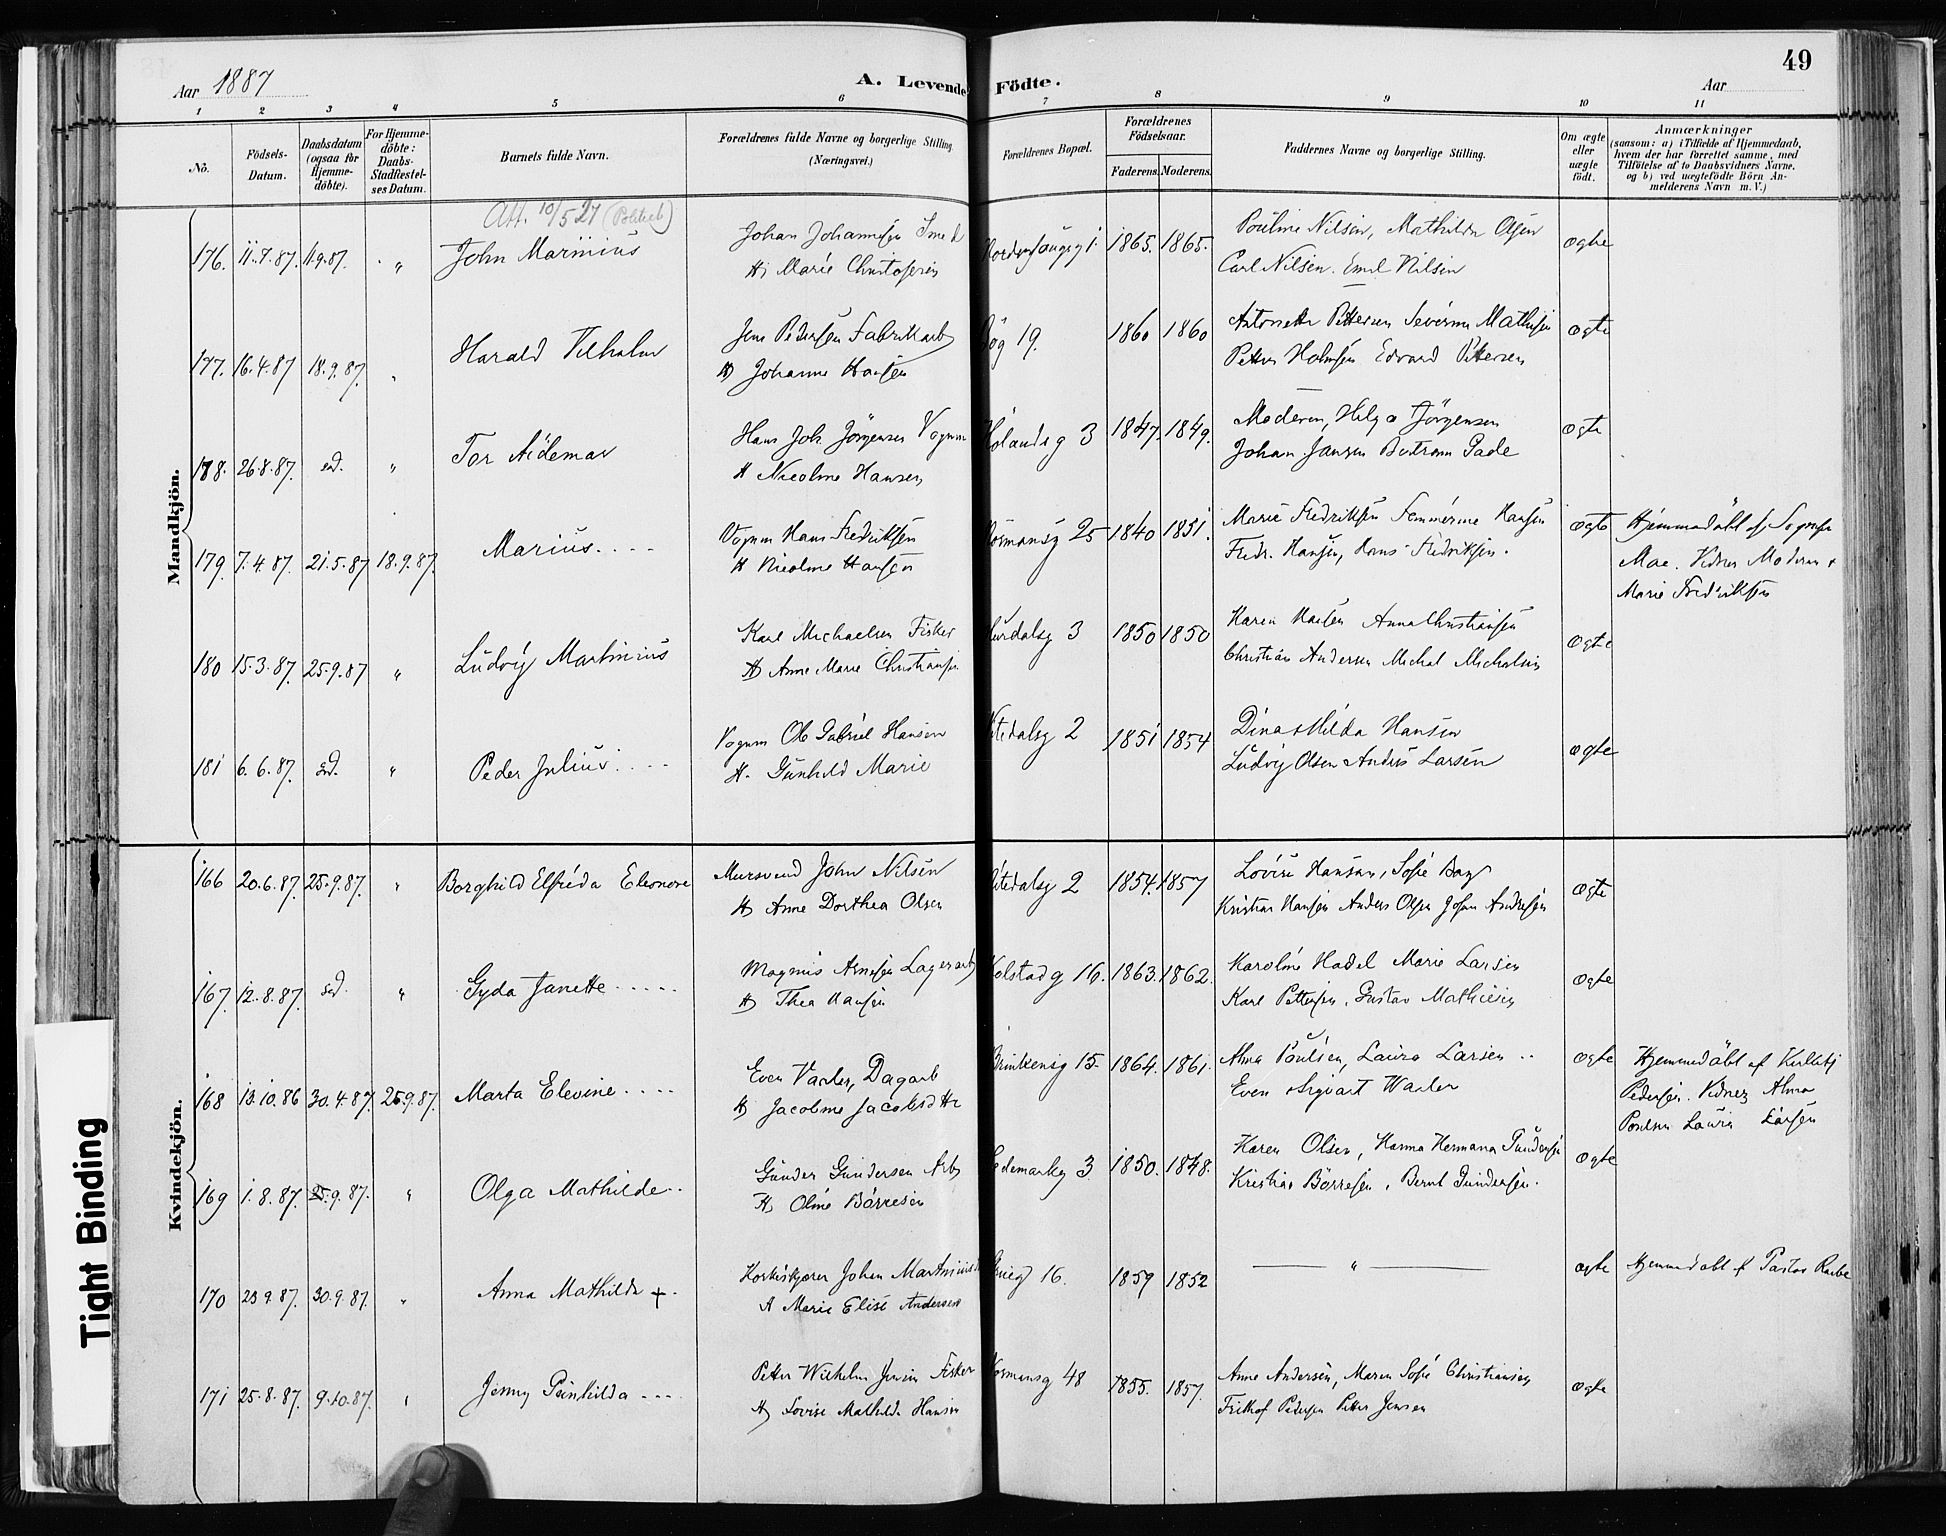 49
Aar 1887
A. Levende Födte.
Aar
1 2 3 4 5 6 7 8 9 10 11
No.
Födsels-Datum.
Daabsdatum (ogsaa för Hjemme-döbte).
For Hjemme-döbte: Daabs-Stadfæstel-ses Datum.
Barnets fulde Navn.
Forældrenes fulde Navne og borgerlige Stilling. (Næringsvei.)
Forældrenes Bopæl.
Forældrenes Födselsaar.
Faderens. Moderens.
Faddernes Navne og borgerlige Stilling.
Om ægte eller uægte födt.
Anmærkninger
(saasom: a) i Tilfælde af Hjemmedaab, hvem der har forrettet samme, med Tilföielse af to Daabsvidners Navne. og b) ved uægtefödte Börn An-melderens Navn m. V.)
Mandkjön.
Att. 10/5 27
176. 11.7.87. 11.9.87. " John Marinius
Johan Johannesen
Marie Christofersen
1865. 1865.
Pouline Nilsen, Mathilde Olsen
Carl Nilsen. Emil Nilsen
ægte
177. 16.4.87 18.9.87. " Harald Vilhelm
Jens Pedersen Fabrikarb
Johanne Hansen
19. 1860 1860
Antonette Pettersen Severine Mathisen
Petter Holmsen Edvard Pettersen
ægte
178. 26.8.87. sd. " Tor Aidemar
Hans Joh. Jörgensen Vognm
H Nicoline Hansen
Hölandsg 3 1847. 1849.
Moderen, Helga Jörgensen
Johan Jansen Bertram Gade
ægte
179. 7.4.87. 21.5.87 18.9.87. Marius
Vognm Hans Fredriksen
H Nicoline Hansen
25 1840 1851.
Marie Fredriksen Hansen
Fredr. Hansen, Hans Fredriksen.
ægte
Hjemmedöbt af
Vidner Moderen +
Marie Fredriksen
180 15.3.87. 25.9.87 " Ludvig Martinius
Karl Michaelsen Fisker
H Anne Marie Christiansen
Hurdalsg 3 1850 1850
Karen Hansen Anna Christiansen
Christian Andersen Michal Michalsen
ægte
181 6.6.87. sd. " Peder Julius
Vognm Ole Gabriel Hansen
H. Gunhild Marie
Nitedalsg 2 1851 1854
Dina & Hilda Hansen
Ludvig Olsen & Anders Larsen
ægte
Kvindekjön.
166 20.6.87. 25.9.87. " Borghild Elfrida Eleonore
Mursvend John Nilsen
H Anne Dorthea Olsen
Nitedalsg 2 1854. 1857
Lovise Hansen, Sofie
Kristian Hansen Anders Olsen Johan Andresen
ægte
167. 12.8.87. sd. " Gyda Janette
Magnus Arnesen Lagerarb
H Thea Hansen
Kolstadg 16. 1863. 1862.
Karoline Hadel Marie Larsen
Karl Pettersen, Gustav Mathiesen
ægte
168 13.10.86 30.4.87. 25.9.87. Marta Elevine
Even Varler, Dagarb
H Jacobine
15. 1864. 1861.
Alma Poulsen, Laura Larsen
Even & Sigvart Warler
ægte
Hjemmedöbt af
Pedersen. Vidner Alma
Poulsen Laura Larsen
169 1.8.87. 25.9.87. " Olga Mathilde
Gunder Gundersen Arb
H Oline Börresen
Hedemarksg 3. 1850. 1848.
Karen Olsen, Hanna Hermana Gundersen
Kristian Börresen, Bernt Gundersen.
ægte
170 23.9.87. 30.9.87. " Anna Mathilde +
Johan Martinius
H Marie Elise Andersen
16. 1859 1852
"
ægte
Hjemmedöbt af Pastor
171 25.8.87. 9.10.87. " Jenny
Petter Wilhelm Jensen Fisker
H Lovise Mathilde Hansen
48 1855. 1857.
Anne Andersen, Maren Sofie Christiansen
Frithof Pedersen Petter Jensen
ægte
Tight Binding